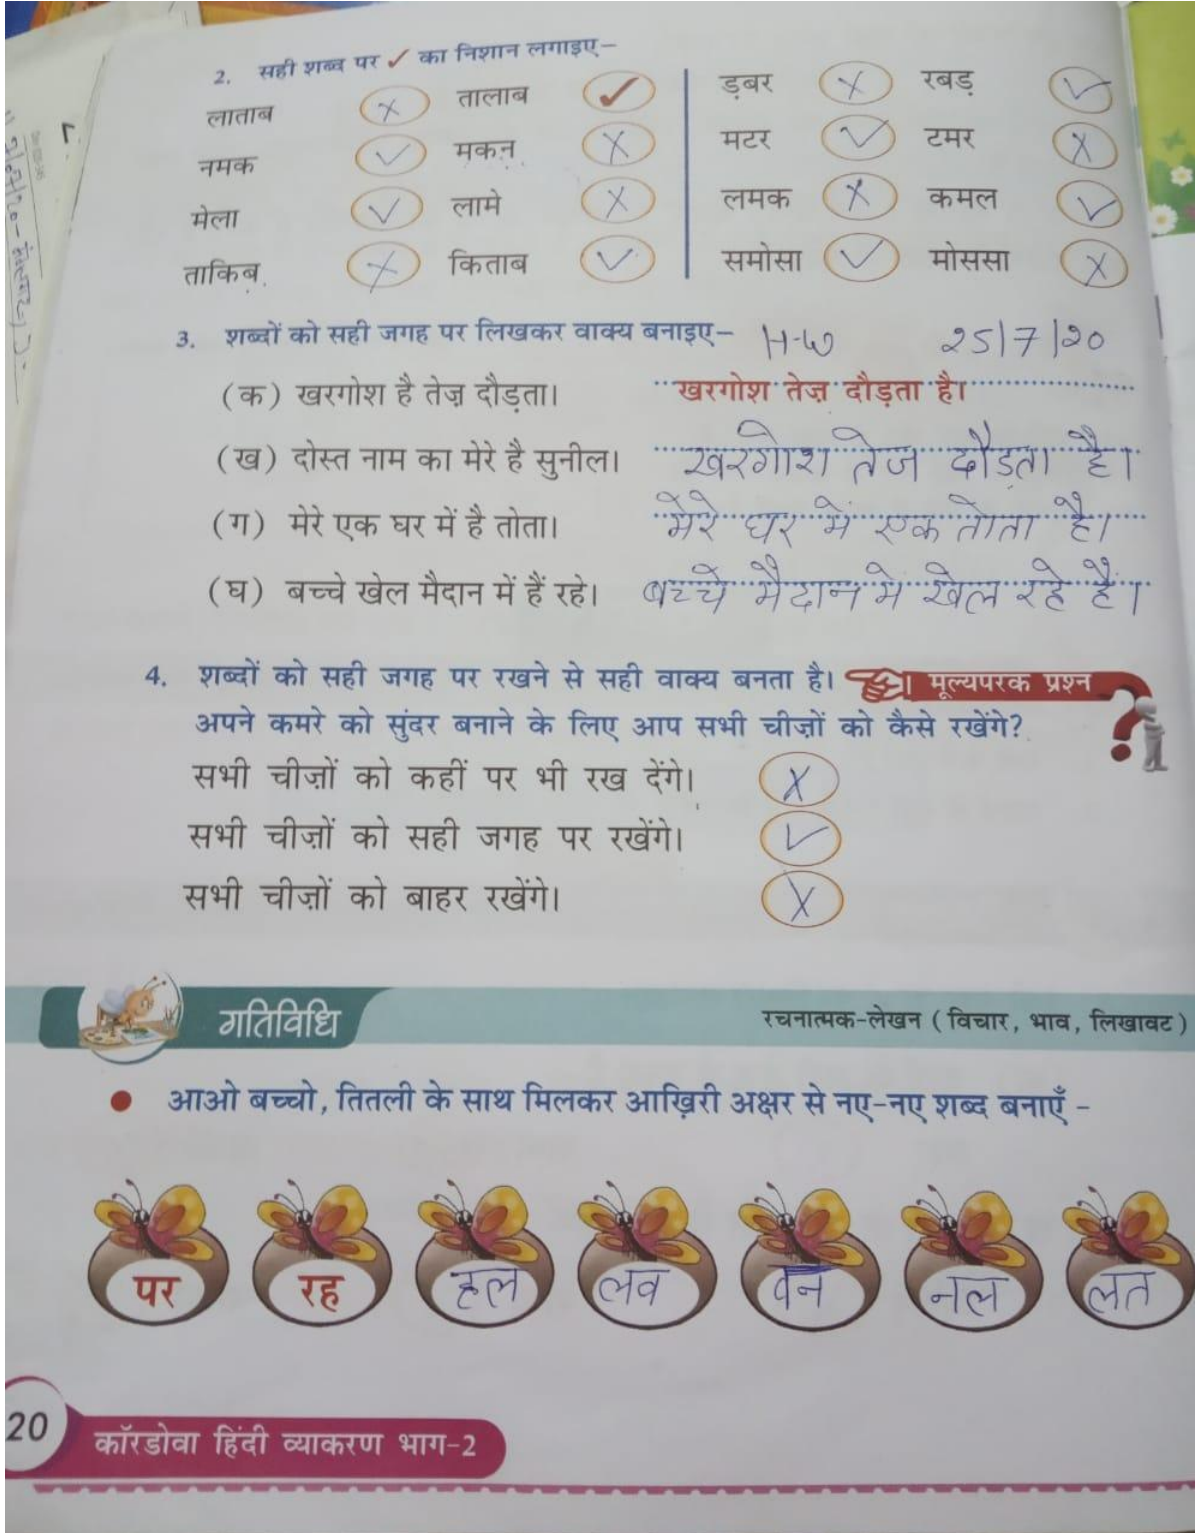 2. सही शब्द पर ✓ का निशान लगाइए–
लाताब ✗ तालाब ✓ ड़बर ✗ रबड़ ✓
नमक ✓ मकन ✗ मटर ✓ टमर ✗
मेला ✓ लामे ✗ लमक ✗ कमल ✓
ताकिब ✗ किताब ✓ समोसा ✓ मोससा ✗
3. शब्दों को सही जगह पर लिखकर वाक्य बनाइए– H-W 25/7/20
(क) खरगोश है तेज़ दौड़ता। खरगोश तेज़ दौड़ता है।
(ख) दोस्त नाम का मेरे है सुनील। खरगोश तेज दौड़ता है।
(ग) मेरे एक घर में है तोता। मेरे घर में एक तोता है।
(घ) बच्चे खेल मैदान में हैं रहे। बच्चे मैदान मे खेल रहे हैं।
4. शब्दों को सही जगह पर रखने से सही वाक्य बनता है। मूल्यपरक प्रश्न
अपने कमरे को सुंदर बनाने के लिए आप सभी चीज़ों को कैसे रखेंगे?
सभी चीज़ों को कहीं पर भी रख देंगे। ✗
सभी चीज़ों को सही जगह पर रखेंगे। ✓
सभी चीज़ों को बाहर रखेंगे। ✗
गतिविधि रचनात्मक-लेखन (विचार, भाव, लिखावट)
● आओ बच्चो, तितली के साथ मिलकर आख़िरी अक्षर से नए-नए शब्द बनाएँ -
पर रह हल लव वन नल लत
20 कॉरडोवा हिंदी व्याकरण भाग-2